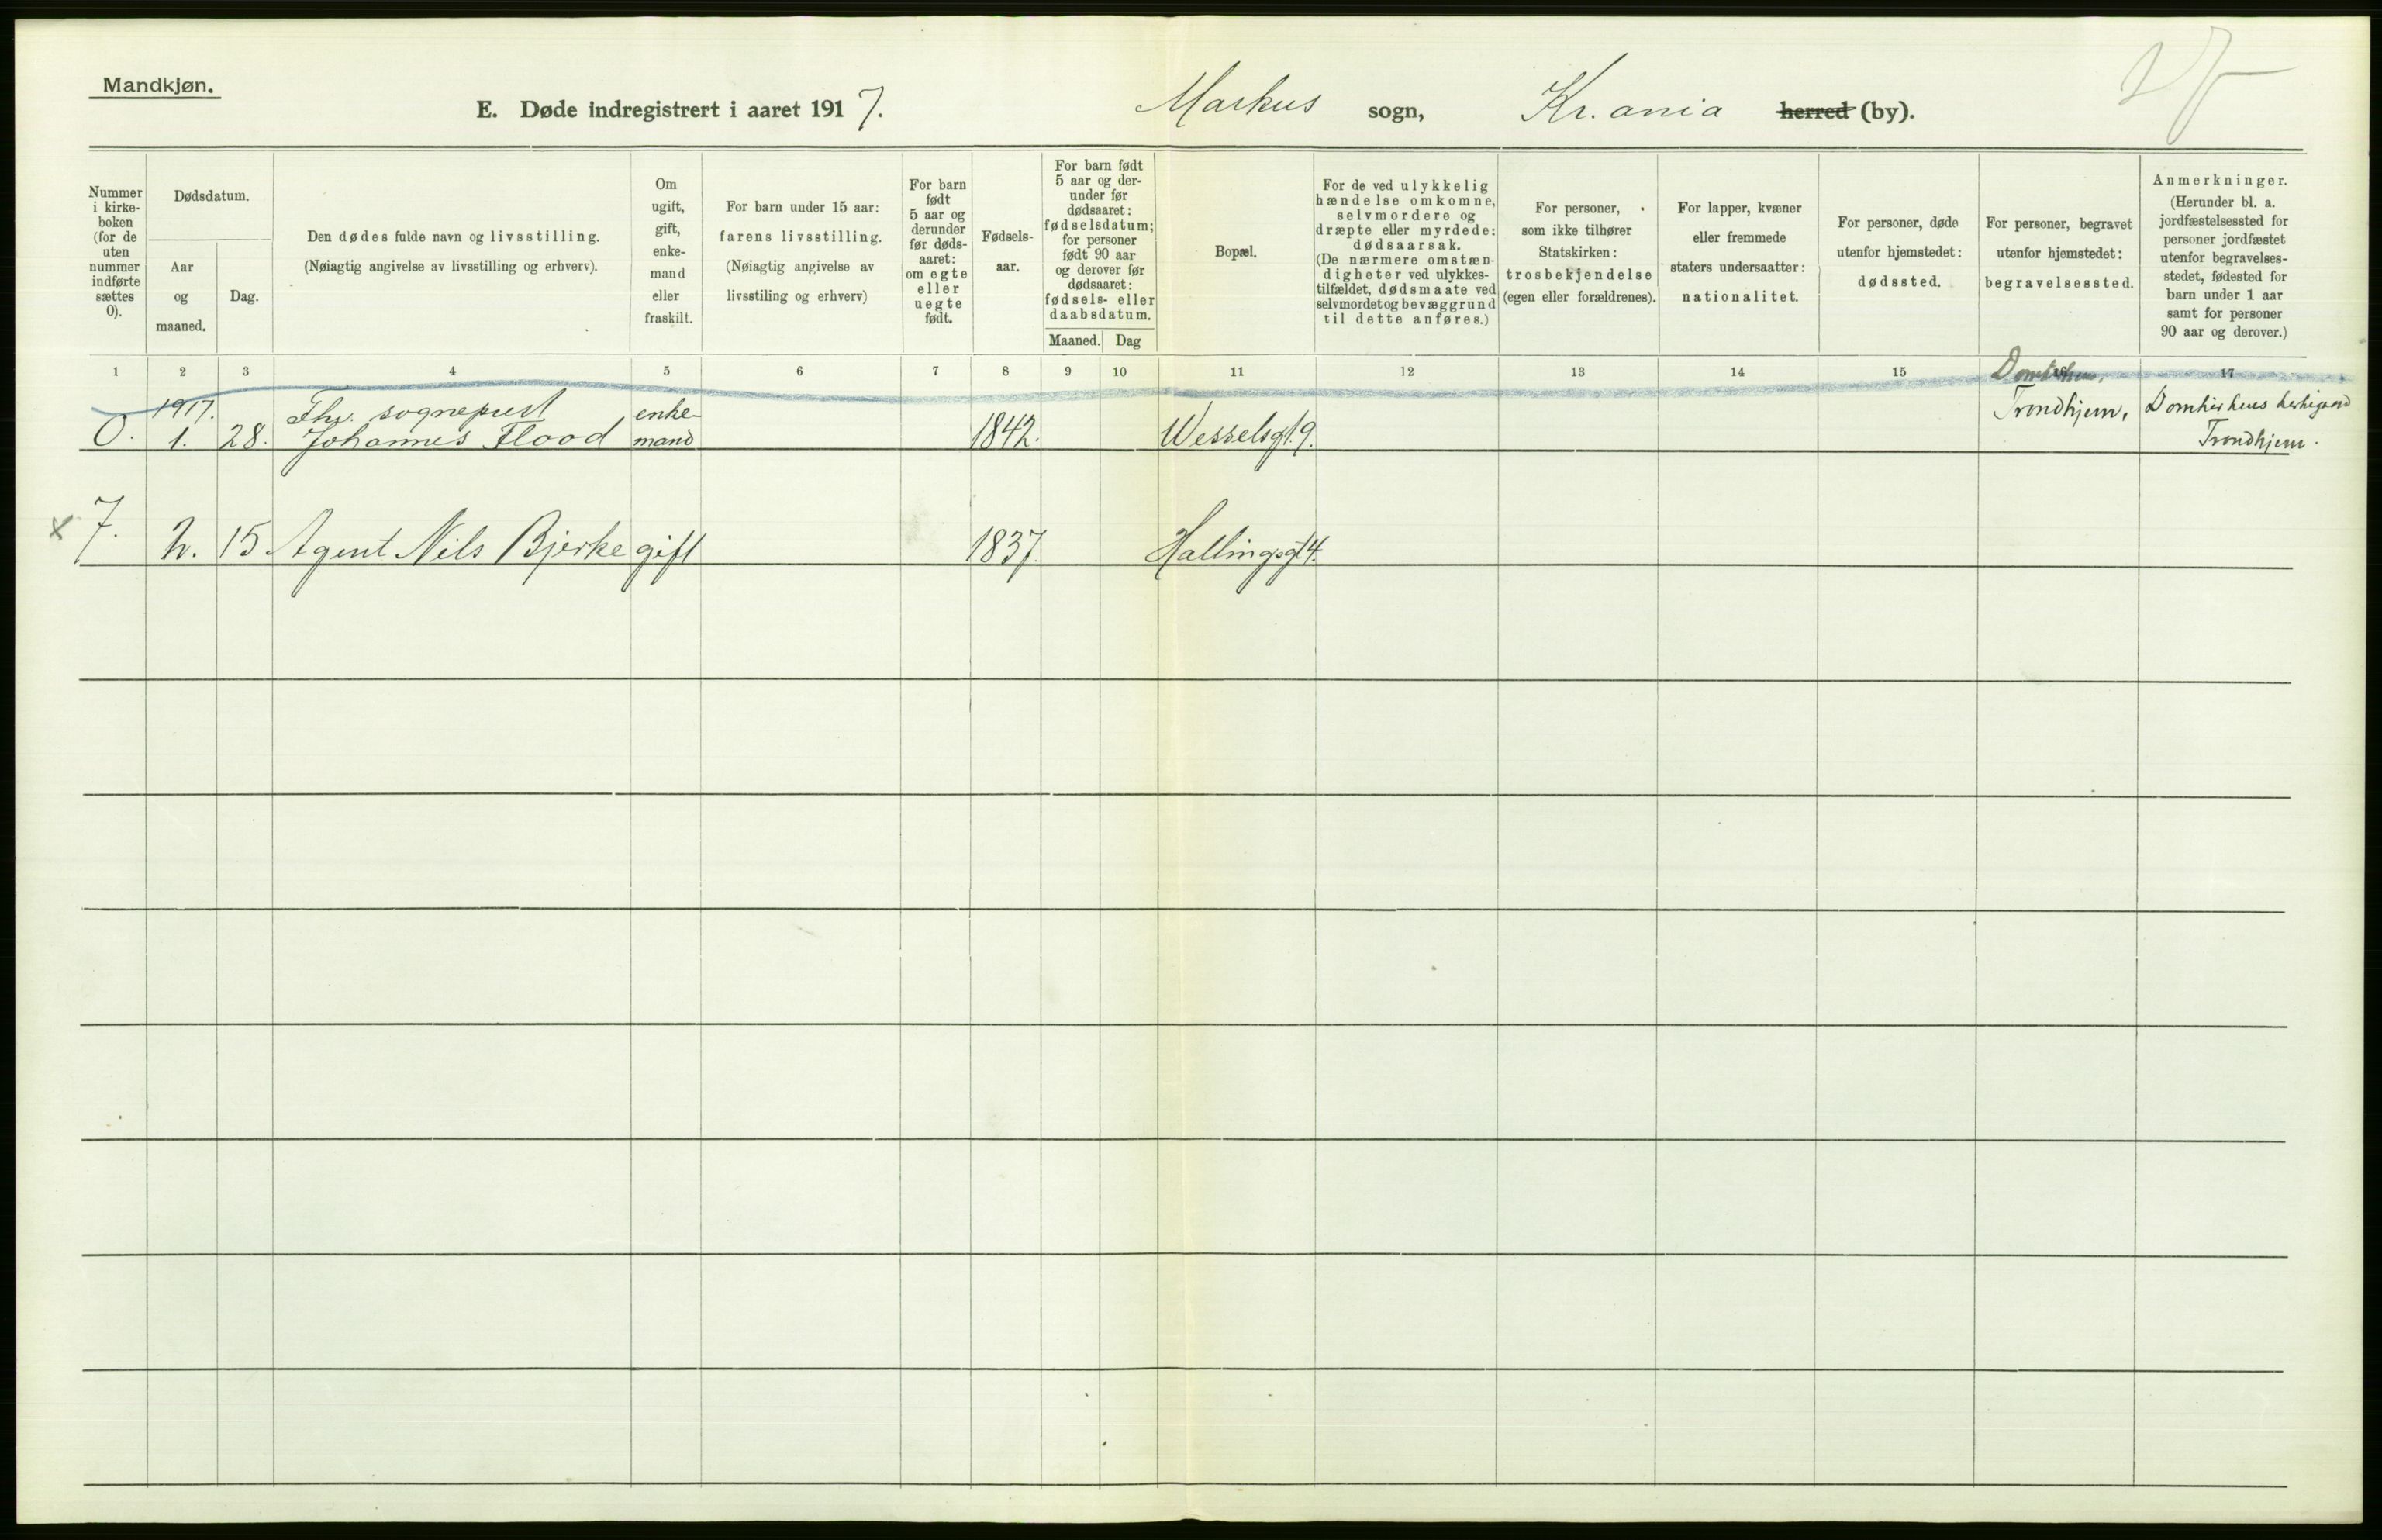 Mandkjøn.
E. Døde indregistrert i aaret 1917. Markus sogn, Kr.ania herred (by).
Nummer i kirke-boken (for de uten nummer indførte sættes 0).
Dødsdatum.
Aar og maaned.
Dag.
Den dødes fulde navn og livsstilling.
(Nøiagtig angivelse av livsstilling og erhverv).
Om ugift, gift, enke-mand eller fraskilt.
For barn under 15 aar:
farens livsstilling.
(Nøiagtig angivelse av
livsstiling og erhverv)
For barn født 5 aar og derunder før døds-aaret: om egte eller uegte født.
Fødsels-aar.
For barn født 5 aar og der-under før dødsaaret: fødselsdatum; for personer født 90 aar og derover før dødsaaret: fødsels- eller daabsdatum.
Maaned. Dag
Bopæl.
For de ved ulykkelig hændelse omkomne, selvmordere og dræpte eller myrdede: dødsaarsak.
(De nærmere omstæn-digheter ved ulykkes-tilfældet, dødsmaate ved selvmordet og bevæggrund til dette anføres.)
For personer, som ikke tilhører Statskirken: trosbekjendelse (egen eller forældrenes).
For lapper, kvæner eller fremmede staters undersaatter: nationalitet.
For personer, døde utenfor hjemstedet: dødssted.
For personer, begravet utenfor hjemstedet: begravelsessted.
Anmerkninger.
(Herunder bl. a. jordfæstelsessted for personer jordfæstet utenfor begravelses-stedet, fødested for barn under 1 aar samt for personer 90 aar og derover.)
1 2 3 4 5 6 7 8 9 10 11 12 13 14 15 17
1917. Fhv. sogneprest enke- Trondhjem, Domkirkens kirkegaard
0. 1. 28. Johannes Flood mand 1842. Wesselsgt. 9. Trondhjem.
x 7. 2. 15 Agent Nils Bjerke gift 1837. Hallingsgt 4.